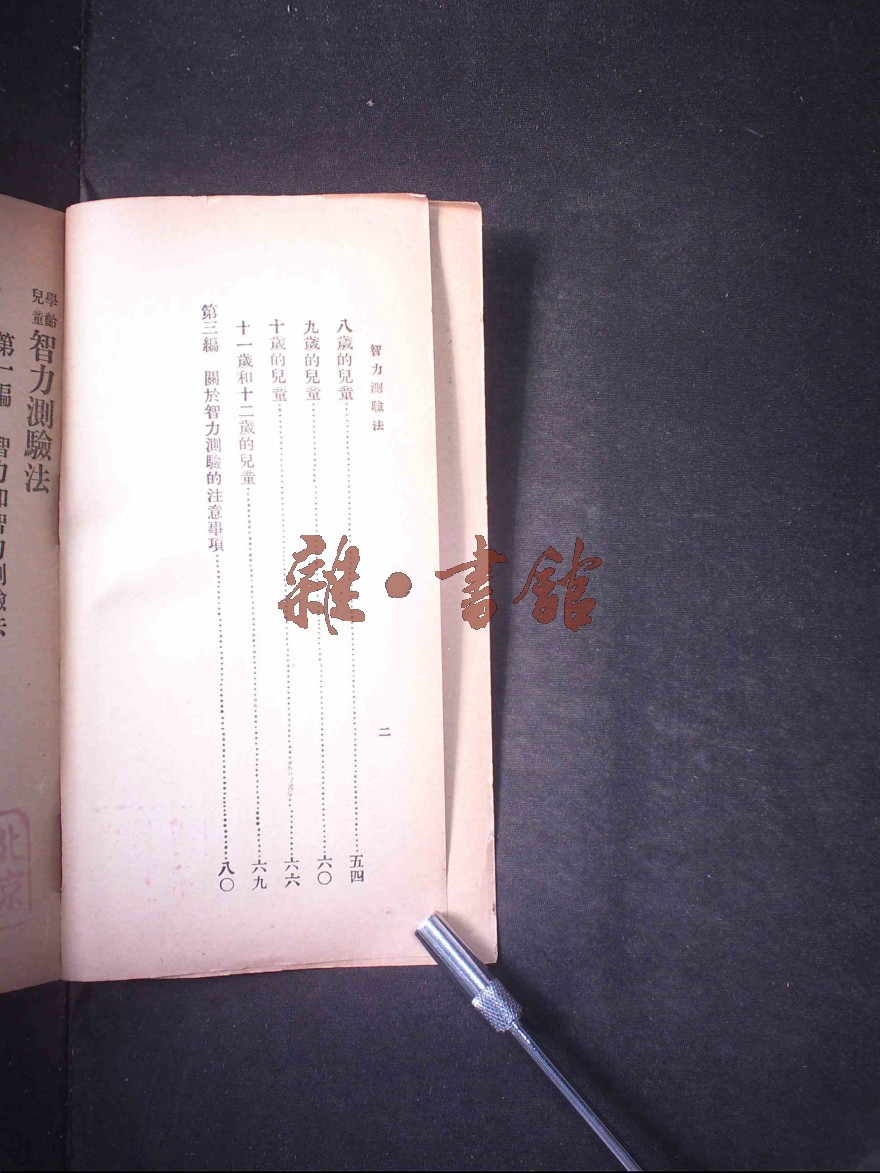 智力測驗法
二
八歲的兒童……五四
九歲的兒童……六〇
十歲的兒童……六六
十一歲和十二歲的兒童……六九
第三編　關於智力測驗的注意事項……八〇
學齡兒童智力測驗法
第一編　智力和智力測驗法
北京
雜・書館